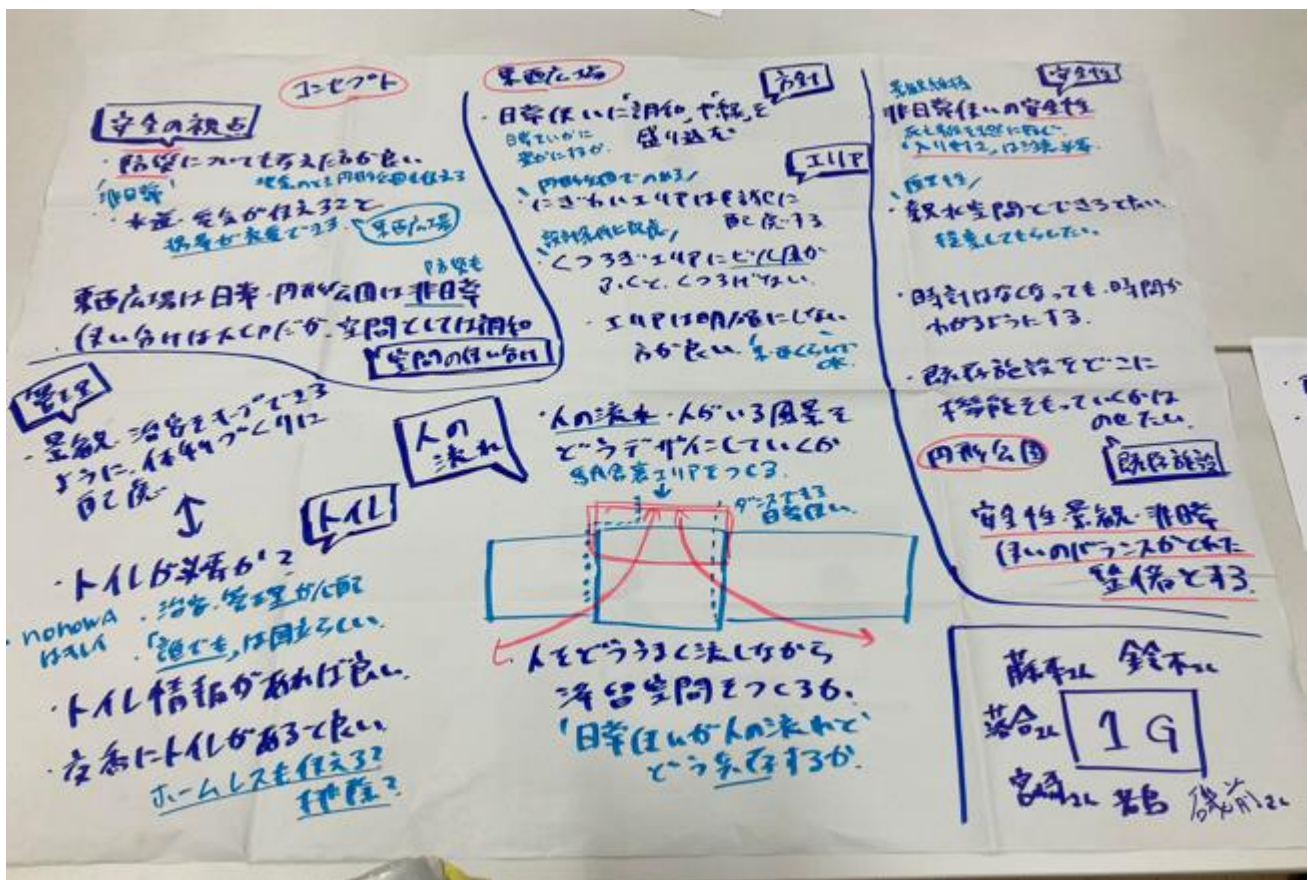 コンセプト
安全の視点
・防災についても考えた方が良い
「非日常」
地震のとき円形公園も使える
・水道・電気が使えると
携帯が充電できる
東西広場
防災も
東西広場は日常・円形公園は非日常
使い分けは大切だが、空間としては調和
空間の使い分け
管理
・景観、治安をキープできる
ように、体制づくりに
配慮
トイレ
・トイレが必要か?
nonowa
はキレイ
・治安・管理が心配
・「誰でも」は国立らしい
・トイレ情報があれば良い
・交番にトイレがあると良い
ホームレスも使える?
排除?
東西広場
方針
・日常使いに「調和」や「緑」を
盛り込む
日常をいかに
豊かにするか
エリア
円形公園でのある
・にぎわいエリアは
配慮する
設計条件に配慮
・くつろぎエリアにビル風が
ふくと、くつろげない
・エリアは明確にしない
方が良い
人の
流れ
・人の流れ・人がいる風景を
どうデザインしていくか
エリアをつくる
ダンスできる
日常使い
・人をどううまく流しながら
滞留空間をつくるか
「日常使いが人の流れと
どう共存するか
安全性
非日常使いの安全性
・親水空間とできるとよい
提案してもらいたい
・時計はなくなっても、時間が
わかるようにする
・既存施設をどこに
機能をもっていくかは
のせたい
円形公園
既存施設
安全性・景観・非日常
使いのバランスがとれた
整備とする
藤本さん 鈴木さん
落合さん 1G
宮崎さん 磯前さん